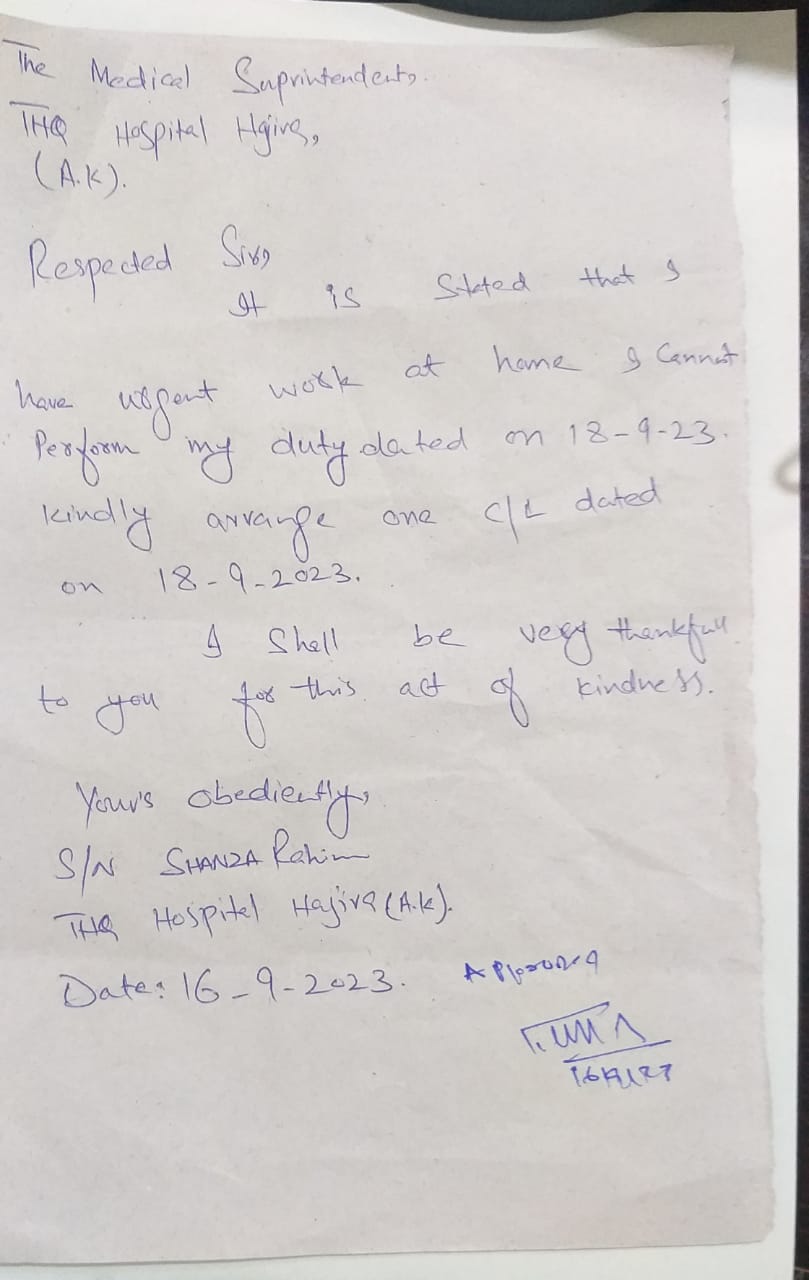 The Medical Suprintendent,
THQ Hospital Hjira,
(A.K).
Respected Sir,
It is Stated that I
have urgent work at home I Cannot
Perform my duty dated on 18-9-23.
kindly arrange one C/L dated
on 18-9-2023.
I Shall be very thankfull
to you for this act of kindness.
Your's obediently,
S/N SHANZA Rahim
THQ Hospital Hajira (A.K).
Date: 16-9-2023.
Approved